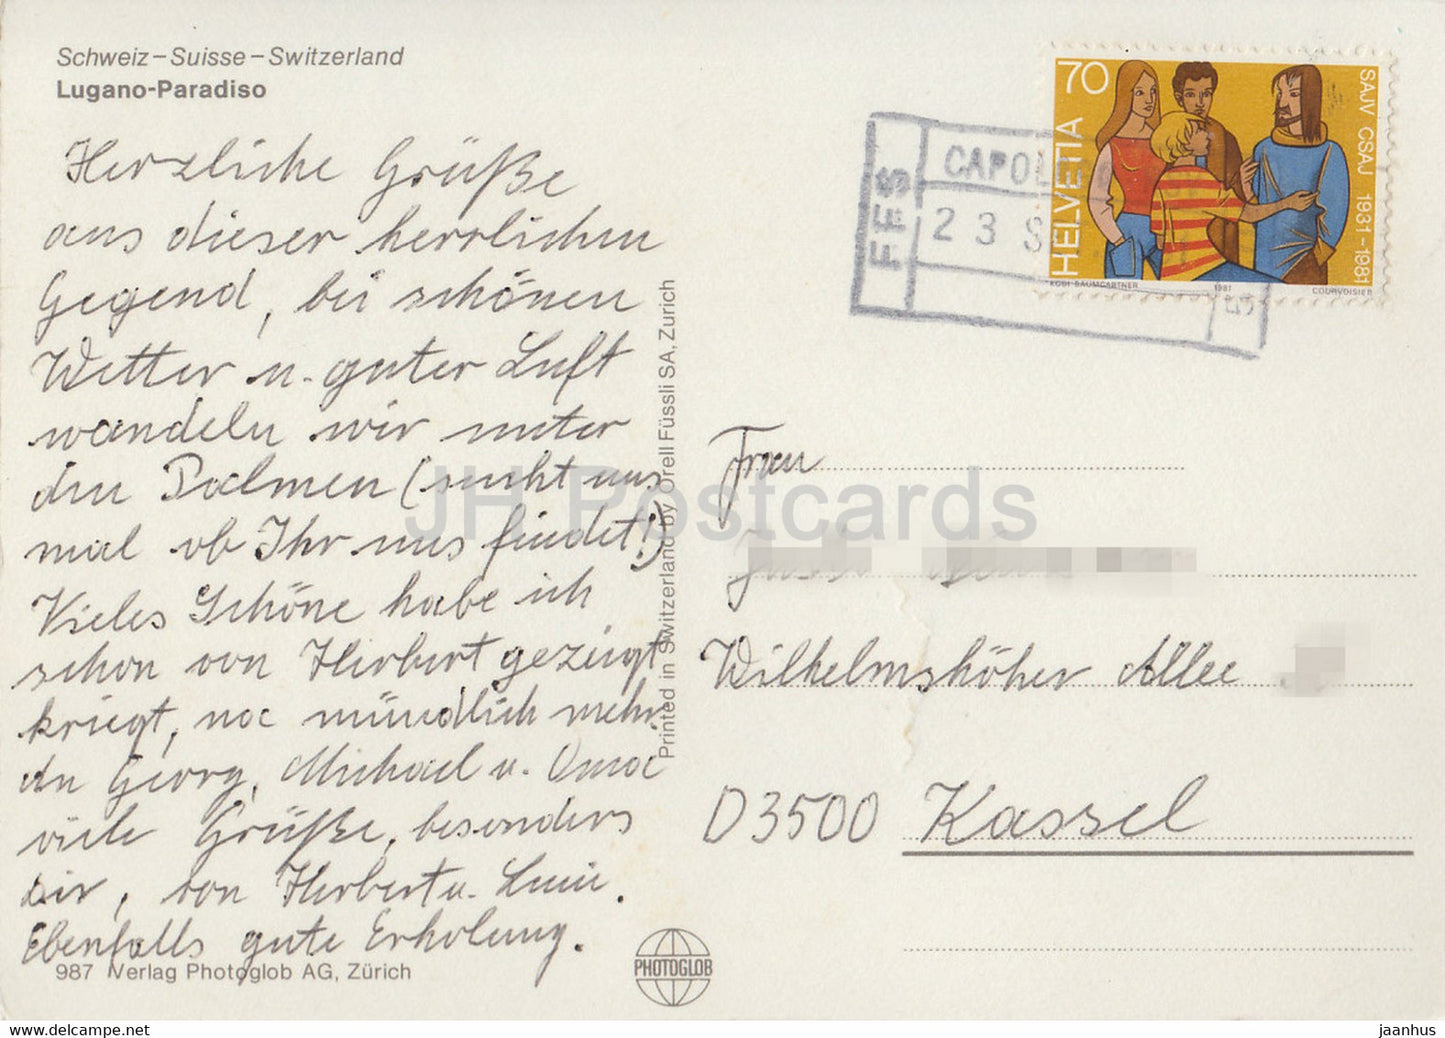 Schweiz – Suisse – Switzerland
Lugano-Paradiso
Herzliche Grüße
aus dieser herrlichen
Gegend, bei schönen
Wetter u. guter Luft
wandeln wir unter
den Palmen (sucht uns
mal ob Ihr uns findet!)
Vieles Schöne habe ich
schon von Herbert gezeigt
kriegt, noc mündlich mehr
An Georg, Michael u. Oma
viele Grüße, besonders
Dir, von Herbert u.
Ebenfalls gute Erholung.
987 Verlag Photoglob AG, Zürich
Printed in Switzerland by Orell Füssli SA, Zürich
PHOTOGLOB
FFS
CAPOL
23 S
70
HELVETIA
SAJV CSAJ 1931-1981
KOBI BAUMGARTNER 1981 COURVOISIER
Frau
Wilhelmshöher Allee
D 3500 Kassel
JH Postcards
https://www.delcampe.net
jaanhus